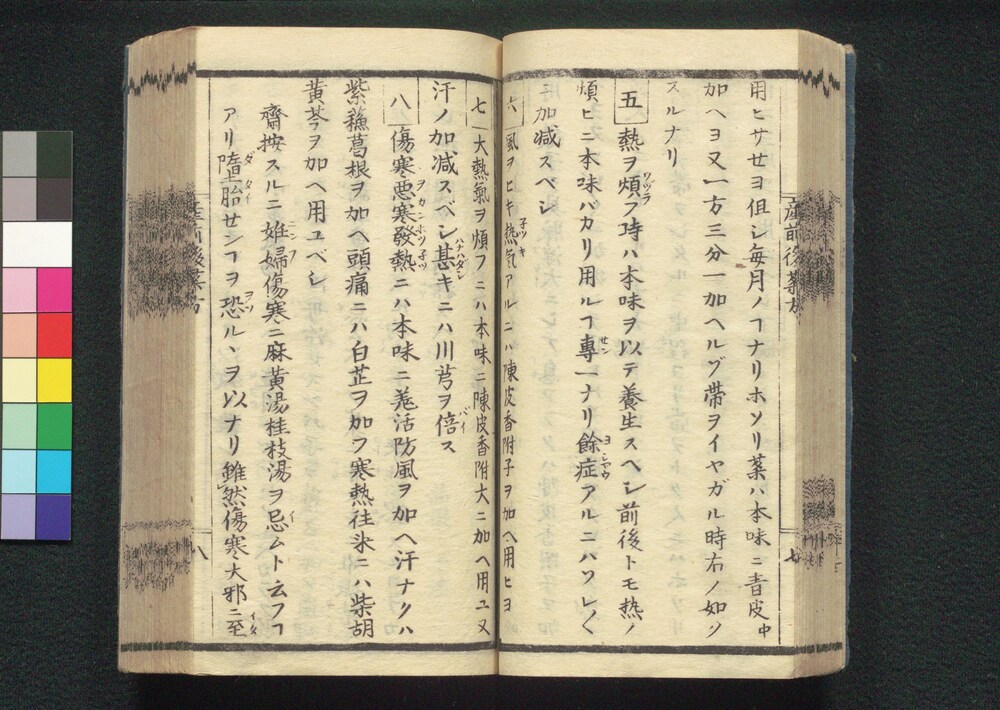 用ヒサセヨ但シ毎月ノヿナリホソリ薬ハ本味ニ青皮中
加ヘヨ又一方三分一加ヘルブ帯ヲイヤガル時右ノ如ソ
スルナリ
五 熱ヲ煩フ時ハ本味ヲ以テ養生スヘシ前後トモ熱ノ
煩ヒニ本味バカリ用ルヿ專一ナリ餘症アルニハソレ〱
ニ加减スベシ
六 風ヲヒキ熱気アルニハ陳皮香附子ヲ加ヘ用ヒヨ
七 大熱氣ヲ煩フニハ本味ニ陳皮香附大ニ加ヘ用ユ又
汗ノ加减スベシ甚キニハ川芎ヲ倍ス
八 傷寒悪寒發熱ニハ本味ニ羗活防風ヲ加ヘ汗ナクハ
紫蘓葛根ヲ加ヘ頭痛ニハ白芷ヲ加フ寒熱徃来ニハ柴胡
黄芩ヲ加ヘ用ユベシ
齋按スルニ妊婦傷寒ニ麻黄湯桂枝湯ヲ忌ムト云フヿ
アリ墮胎センヿヲ恐ルヽヲ以ナリ雖然傷寒大邪ニ至
産前後薬方
七
産前後薬方
八